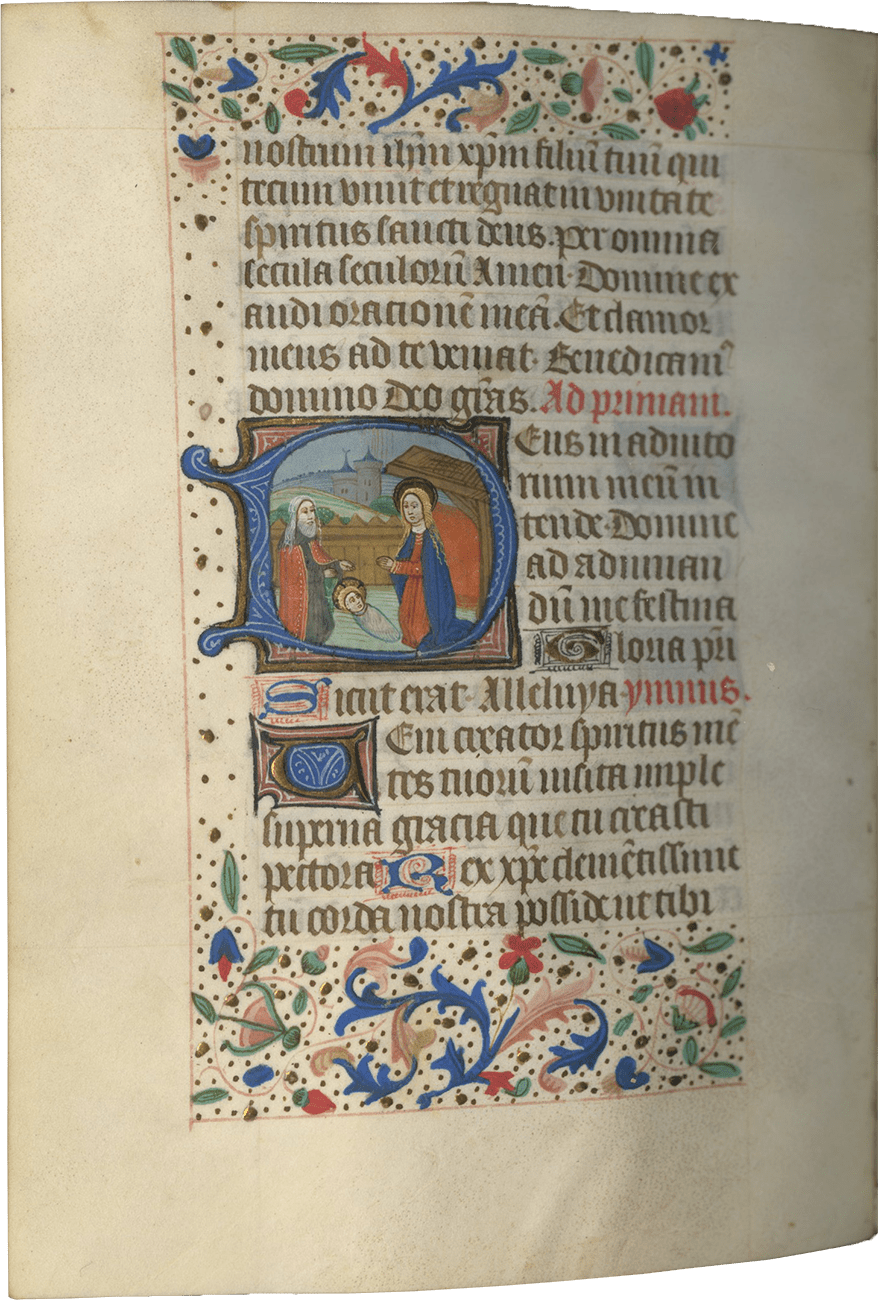 nostrum ihm xpm filiū tuū qui
tecum viuit et regnat in vnitate
spiritus sancti deus. per omnia
secula seculorū Amen. Domine ex
audi orationē meā. Et clamor
meus ad te veniat. Benedicam⁹
domino Deo gr̄as. Ad primam.
Deus in adiuto
rium meū in
tende. Domine
ad adiuuan
dū me festina
Gloria pr̄i
Sicut erat. Alleluya ymnus.
Veni creator spiritus mē
tes tuorū visita imple
superna gracia que tu creasti
pectora Rex xp̄e clemētissime
tu corda nostra posside ut tibi